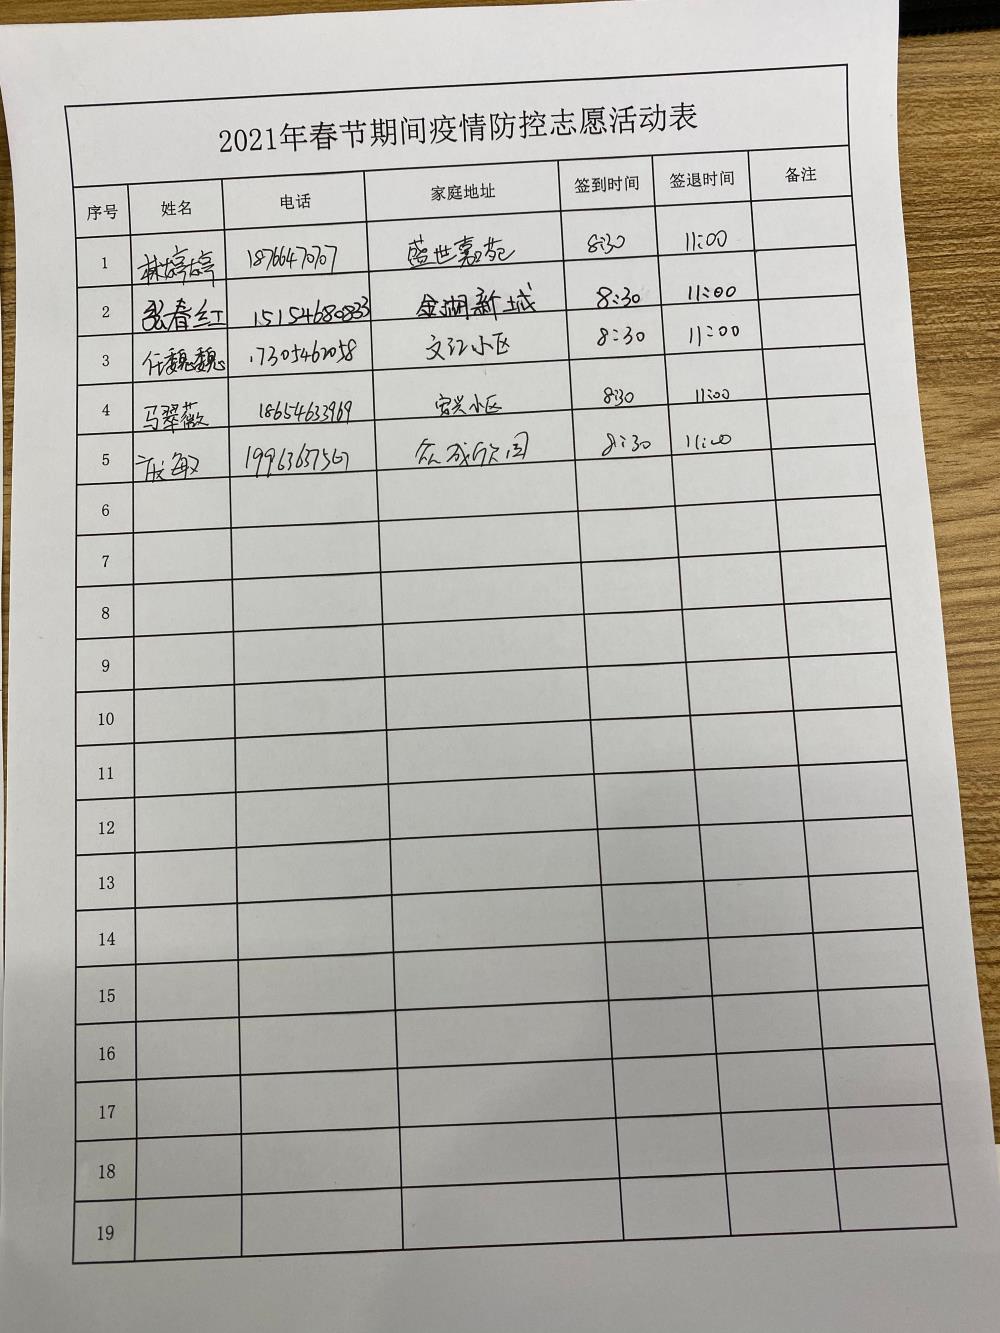 2021年春节期间疫情防控志愿活动表
序号 姓名 电话 家庭地址 签到时间 签退时间 备注
1 林婷婷 18766470707 盛世嘉苑 8:30 11:00
2 张春红 15154680833 金湖新城 8:30 11:00
3 任魏魏 17305462058 文汇小区 8:30 11:00
4 马翠薇 18654633969 安兴小区 8:30 11:00
5 敏 8:30 11:00
6
7
8
9
10
11
12
13
14
15
16
17
18
19